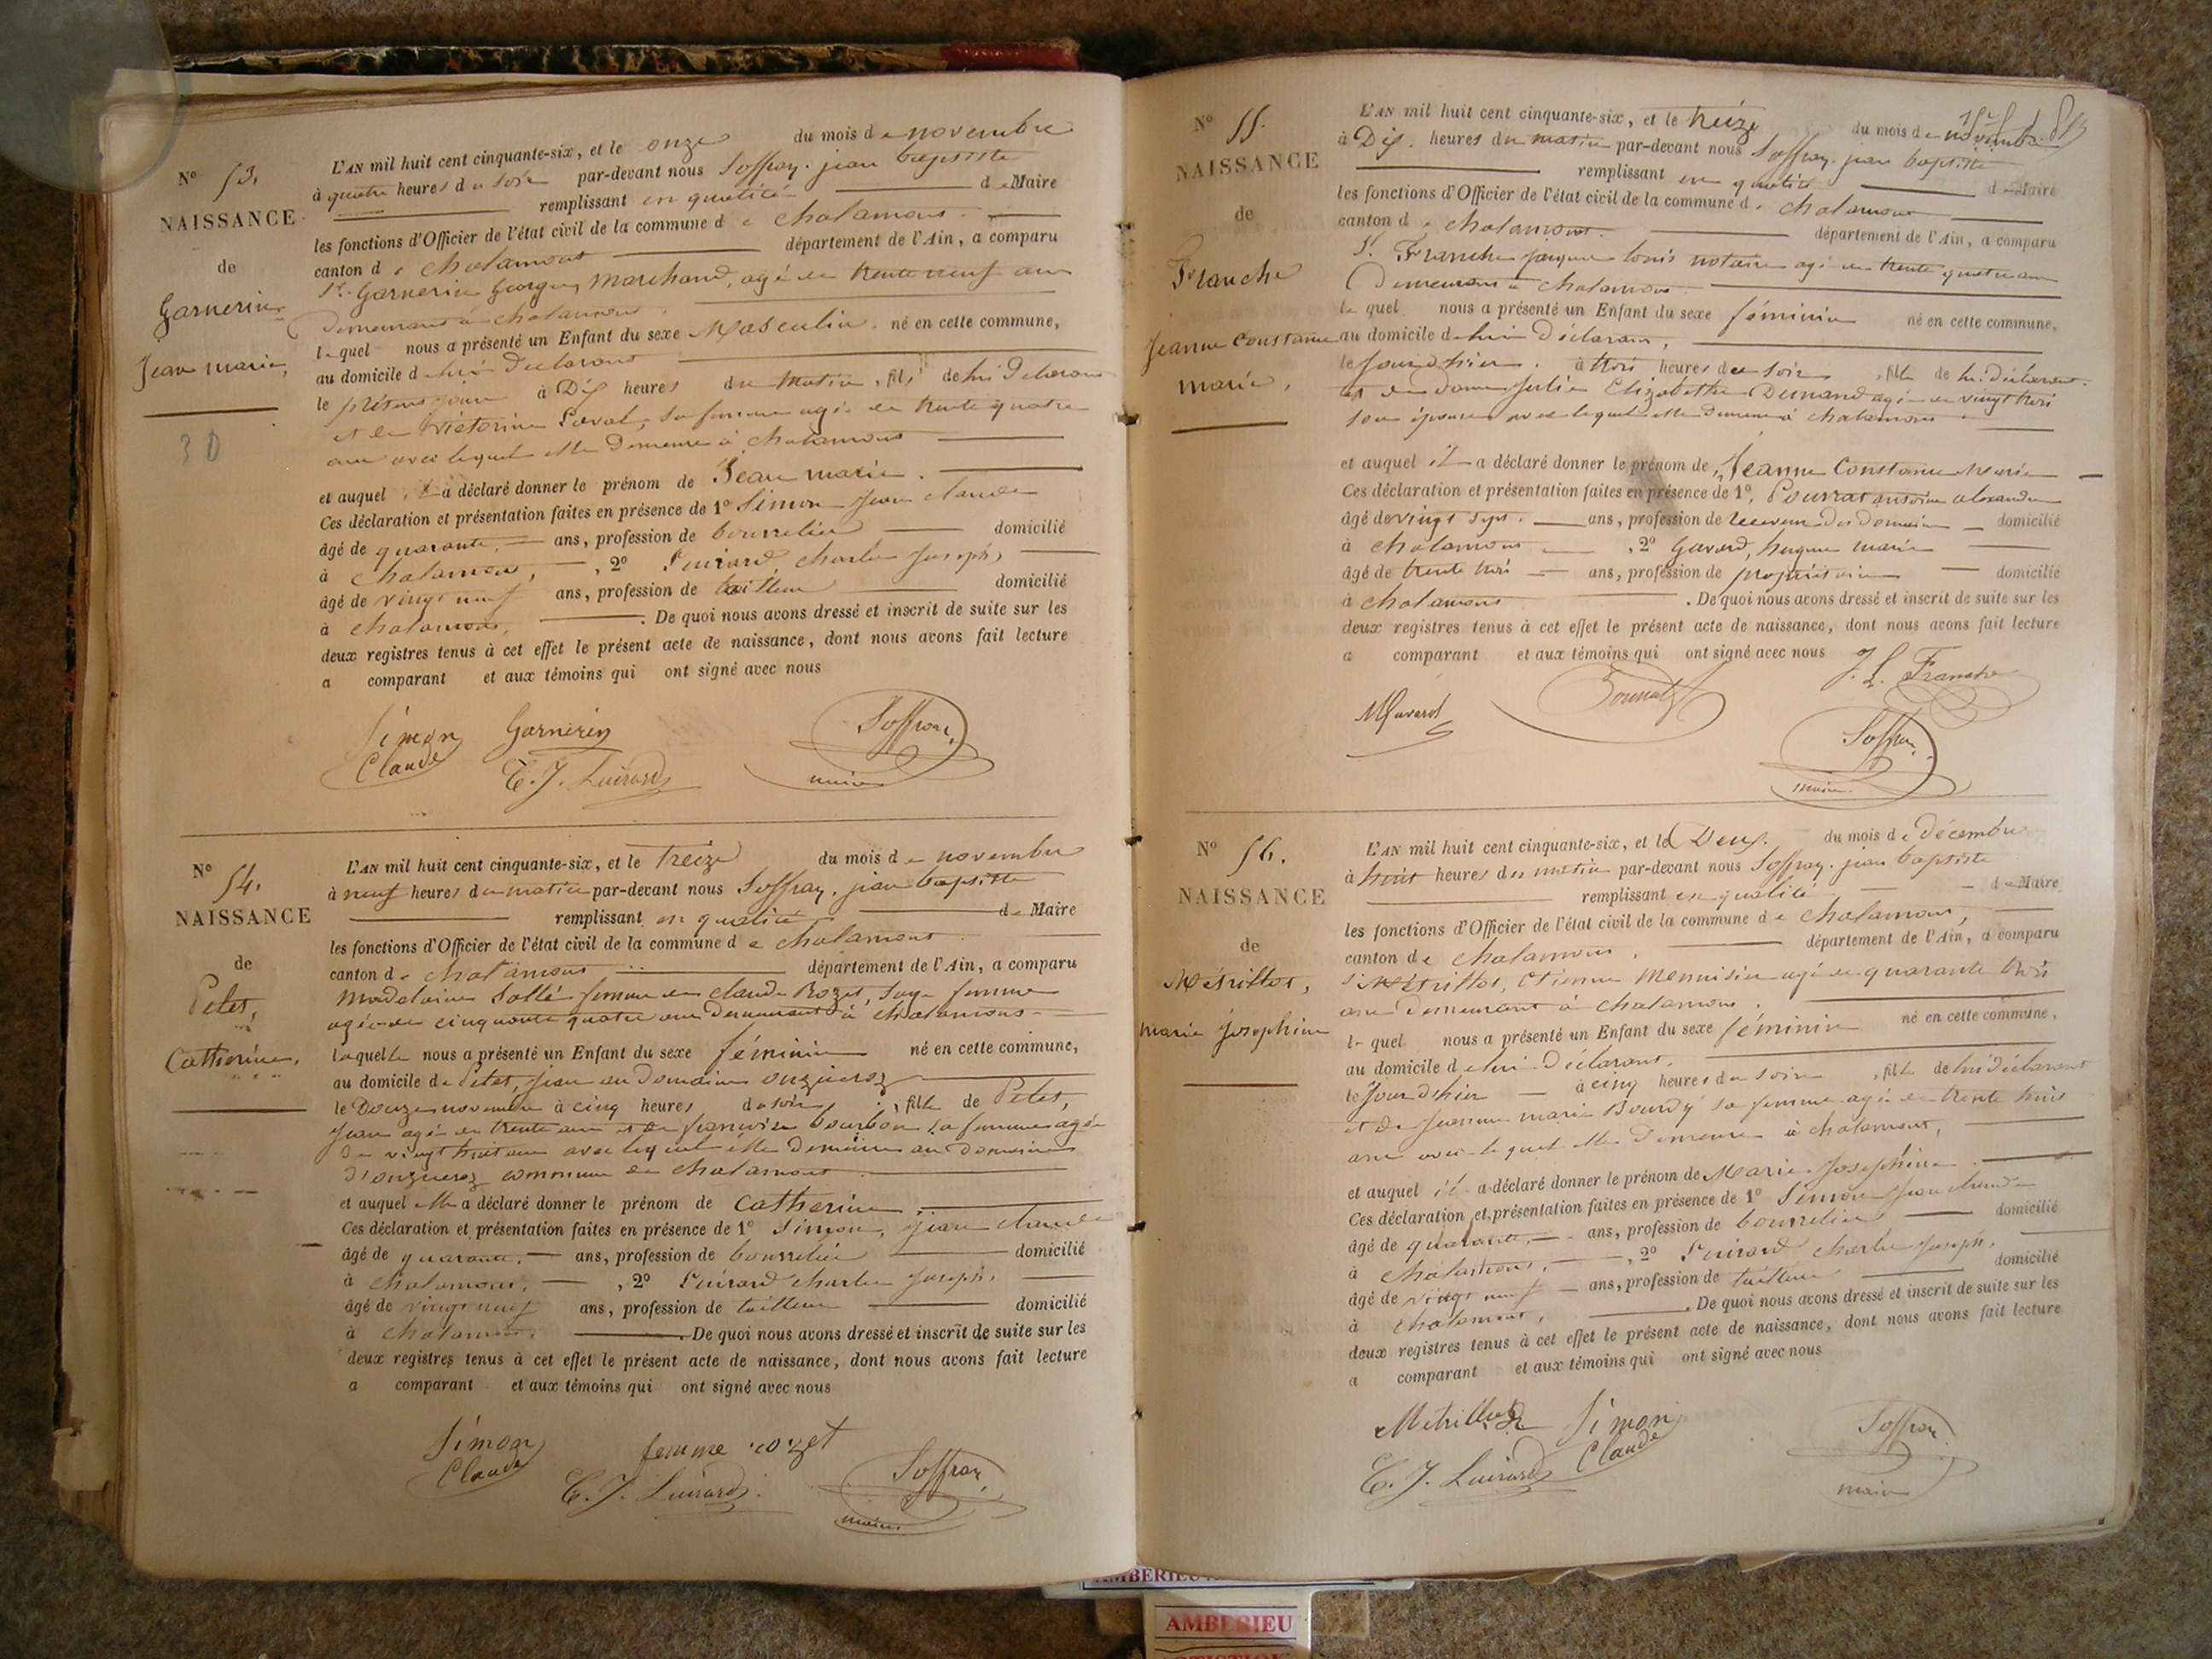 N° 53.
NAISSANCE
de
Garnerin
Jean marie,
30
L'AN mil huit cent cinquante-six, et le onze du mois de novembre
à quatre heures du soir par-devant nous Soffray jean baptiste
remplissant en qualité de Maire
les fonctions d'Officier de l'état civil de la commune de Chalamont
canton de Chalamont département de l'Ain, a comparu
Sr. Garnerin Georges, marchand, agé de trente neuf ans
demeurant à chalamont.
lequel nous a présenté un Enfant du sexe Masculin né en cette commune,
au domicile de lui Déclarant
le présent jour à Dix heures du matin, fils de lui Déclarant
et de Victorine Laval, sa femme agée de trente quatre
ans avec lequel elle Demeure à chalamont
et auquel il a déclaré donner le prénom de Jean marie.
Ces déclaration et présentation faites en présence de 1° Simon Jean claude
âgé de quarante, ans, profession de bourrelier domicilié
à Chalamont, , 2° Luirard, charles Joseph,
âgé de vingt neuf ans, profession de tailleur domicilié
à chalamont, . De quoi nous avons dressé et inscrit de suite sur les
deux registres tenus à cet effet le présent acte de naissance, dont nous avons fait lecture
a comparant et aux témoins qui ont signé avec nous
Simon Garnerin Soffray
Claude C. J. Luirard maire
N° 54.
NAISSANCE
de
Pelet,
Catherine,
L'AN mil huit cent cinquante-six, et le treize du mois de novembre
à neuf heures du matin par-devant nous Soffray, jean baptiste
remplissant en qualité de Maire
les fonctions d'Officier de l'état civil de la commune de Chalamont
canton de chalamont département de l'Ain, a comparu
Madelaine Sallé femme de claude Rozet, sage femme
agée de cinquante quatre ans Demeurant à chalamont
laquelle nous a présenté un Enfant du sexe féminin né en cette commune,
au domicile de Pelet, jean au Domaine
le Douze novembre à cinq heures du soir, fille de Pelet,
Jean agé de trente ans et de françoise Bourbon sa femme agée
de vingt huit ans avec lequel elle Demeure au Domaine
commune de chalamont
et auquel elle a déclaré donner le prénom de Catherine.
Ces déclaration et présentation faites en présence de 1° Simon, Jean claude
âgé de quarante, ans, profession de bourrelier domicilié
à chalamont, , 2° Luirard charles Joseph,
âgé de vingt neuf ans, profession de tailleur domicilié
à chalamont, . De quoi nous avons dressé et inscrit de suite sur les
deux registres tenus à cet effet le présent acte de naissance, dont nous avons fait lecture
a comparant et aux témoins qui ont signé avec nous
Simon femme rozet Soffray
Claude C. J. Luirard maire
N° 55.
NAISSANCE
de
Franche
Jeanne Constance
marie,
L'AN mil huit cent cinquante-six, et le treize du mois de novembre
à Dix heures du matin par-devant nous Soffray jean baptiste
remplissant en qualité de Maire
les fonctions d'Officier de l'état civil de la commune de chalamont
canton de chalamont. département de l'Ain, a comparu
Sr. Franche jacques louis notaire agé de trente quatre ans
Demeurant à chalamont.
lequel nous a présenté un Enfant du sexe féminin né en cette commune,
au domicile de lui Déclarant,
le Jour d'hier. à trois heures du soir, fille de lui déclarant.
et de dame Julie Elizabeth Dunand agée de vingt trois
son épouse avec lequel elle demeure à chalamont
et auquel il a déclaré donner le prénom de Jeanne Constance Marie
Ces déclaration et présentation faites en présence de 1°, Pourrat antoine alexandre
âgé de vingt sept. ans, profession de receveur des domaines domicilié
à chalamont , 2° Gavard, hugues marie
âgé de trente trois ans, profession de propriétaire domicilié
à chalamont . De quoi nous avons dressé et inscrit de suite sur les
deux registres tenus à cet effet le présent acte de naissance, dont nous avons fait lecture
a comparant et aux témoins qui ont signé avec nous J. L. Franche
MGavard Pourrat
Soffray
maire
N° 56.
NAISSANCE
de
Métrillot,
Marie Josephine
L'AN mil huit cent cinquante-six, et le Deux. du mois de décembre
à huit heures du matin par-devant nous Soffray. jean baptiste
remplissant en qualité de Maire
les fonctions d'Officier de l'état civil de la commune de Chalamont,
canton de chalamont, département de l'Ain, a comparu
Sr Métrillot, Etienne Menuisier agé de quarante trois
ans demeurant à chalamont.
lequel nous a présenté un Enfant du sexe féminin né en cette commune,
au domicile de lui Déclarant,
le Jour d'hier à cinq heures du soir, fille de lui déclarant
et de Jeanne marie Bourdy sa femme agée de trente huit
ans avec lequel elle Demeure à chalamont,
et auquel il a déclaré donner le prénom de Marie Josephine.
Ces déclaration et présentation faites en présence de 1° Simon Jean claude
âgé de quarante, ans, profession de bourrelier domicilié
à chalamont, , 2° Luirard charles Joseph.
âgé de vingt neuf ans, profession de tailleur domicilié
à chalamont, . De quoi nous avons dressé et inscrit de suite sur les
deux registres tenus à cet effet le présent acte de naissance, dont nous avons fait lecture
a comparant et aux témoins qui ont signé avec nous
Métrillot Simon Soffray
C. J. Luirard Claude maire
AMBERIEU